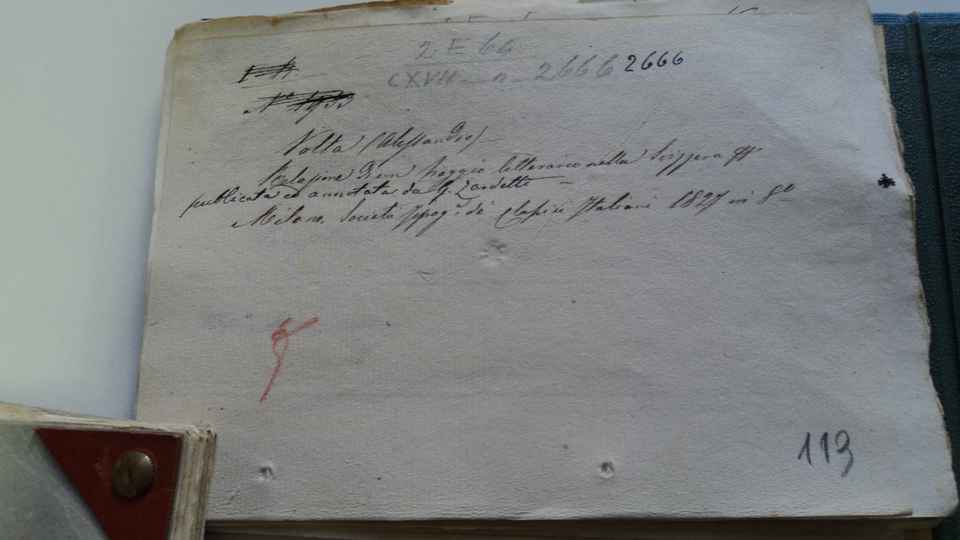 2 E 64
CXVII - n - 2666 2666
Nº 1933
Volta (Alessandro)
Relazione d'un viaggio letterario nella Svizzera &&
publicata ed annotata da G. Zardetti
Milano, Società Tipog.ª de' Classici Italiani 1827 in 8º
113